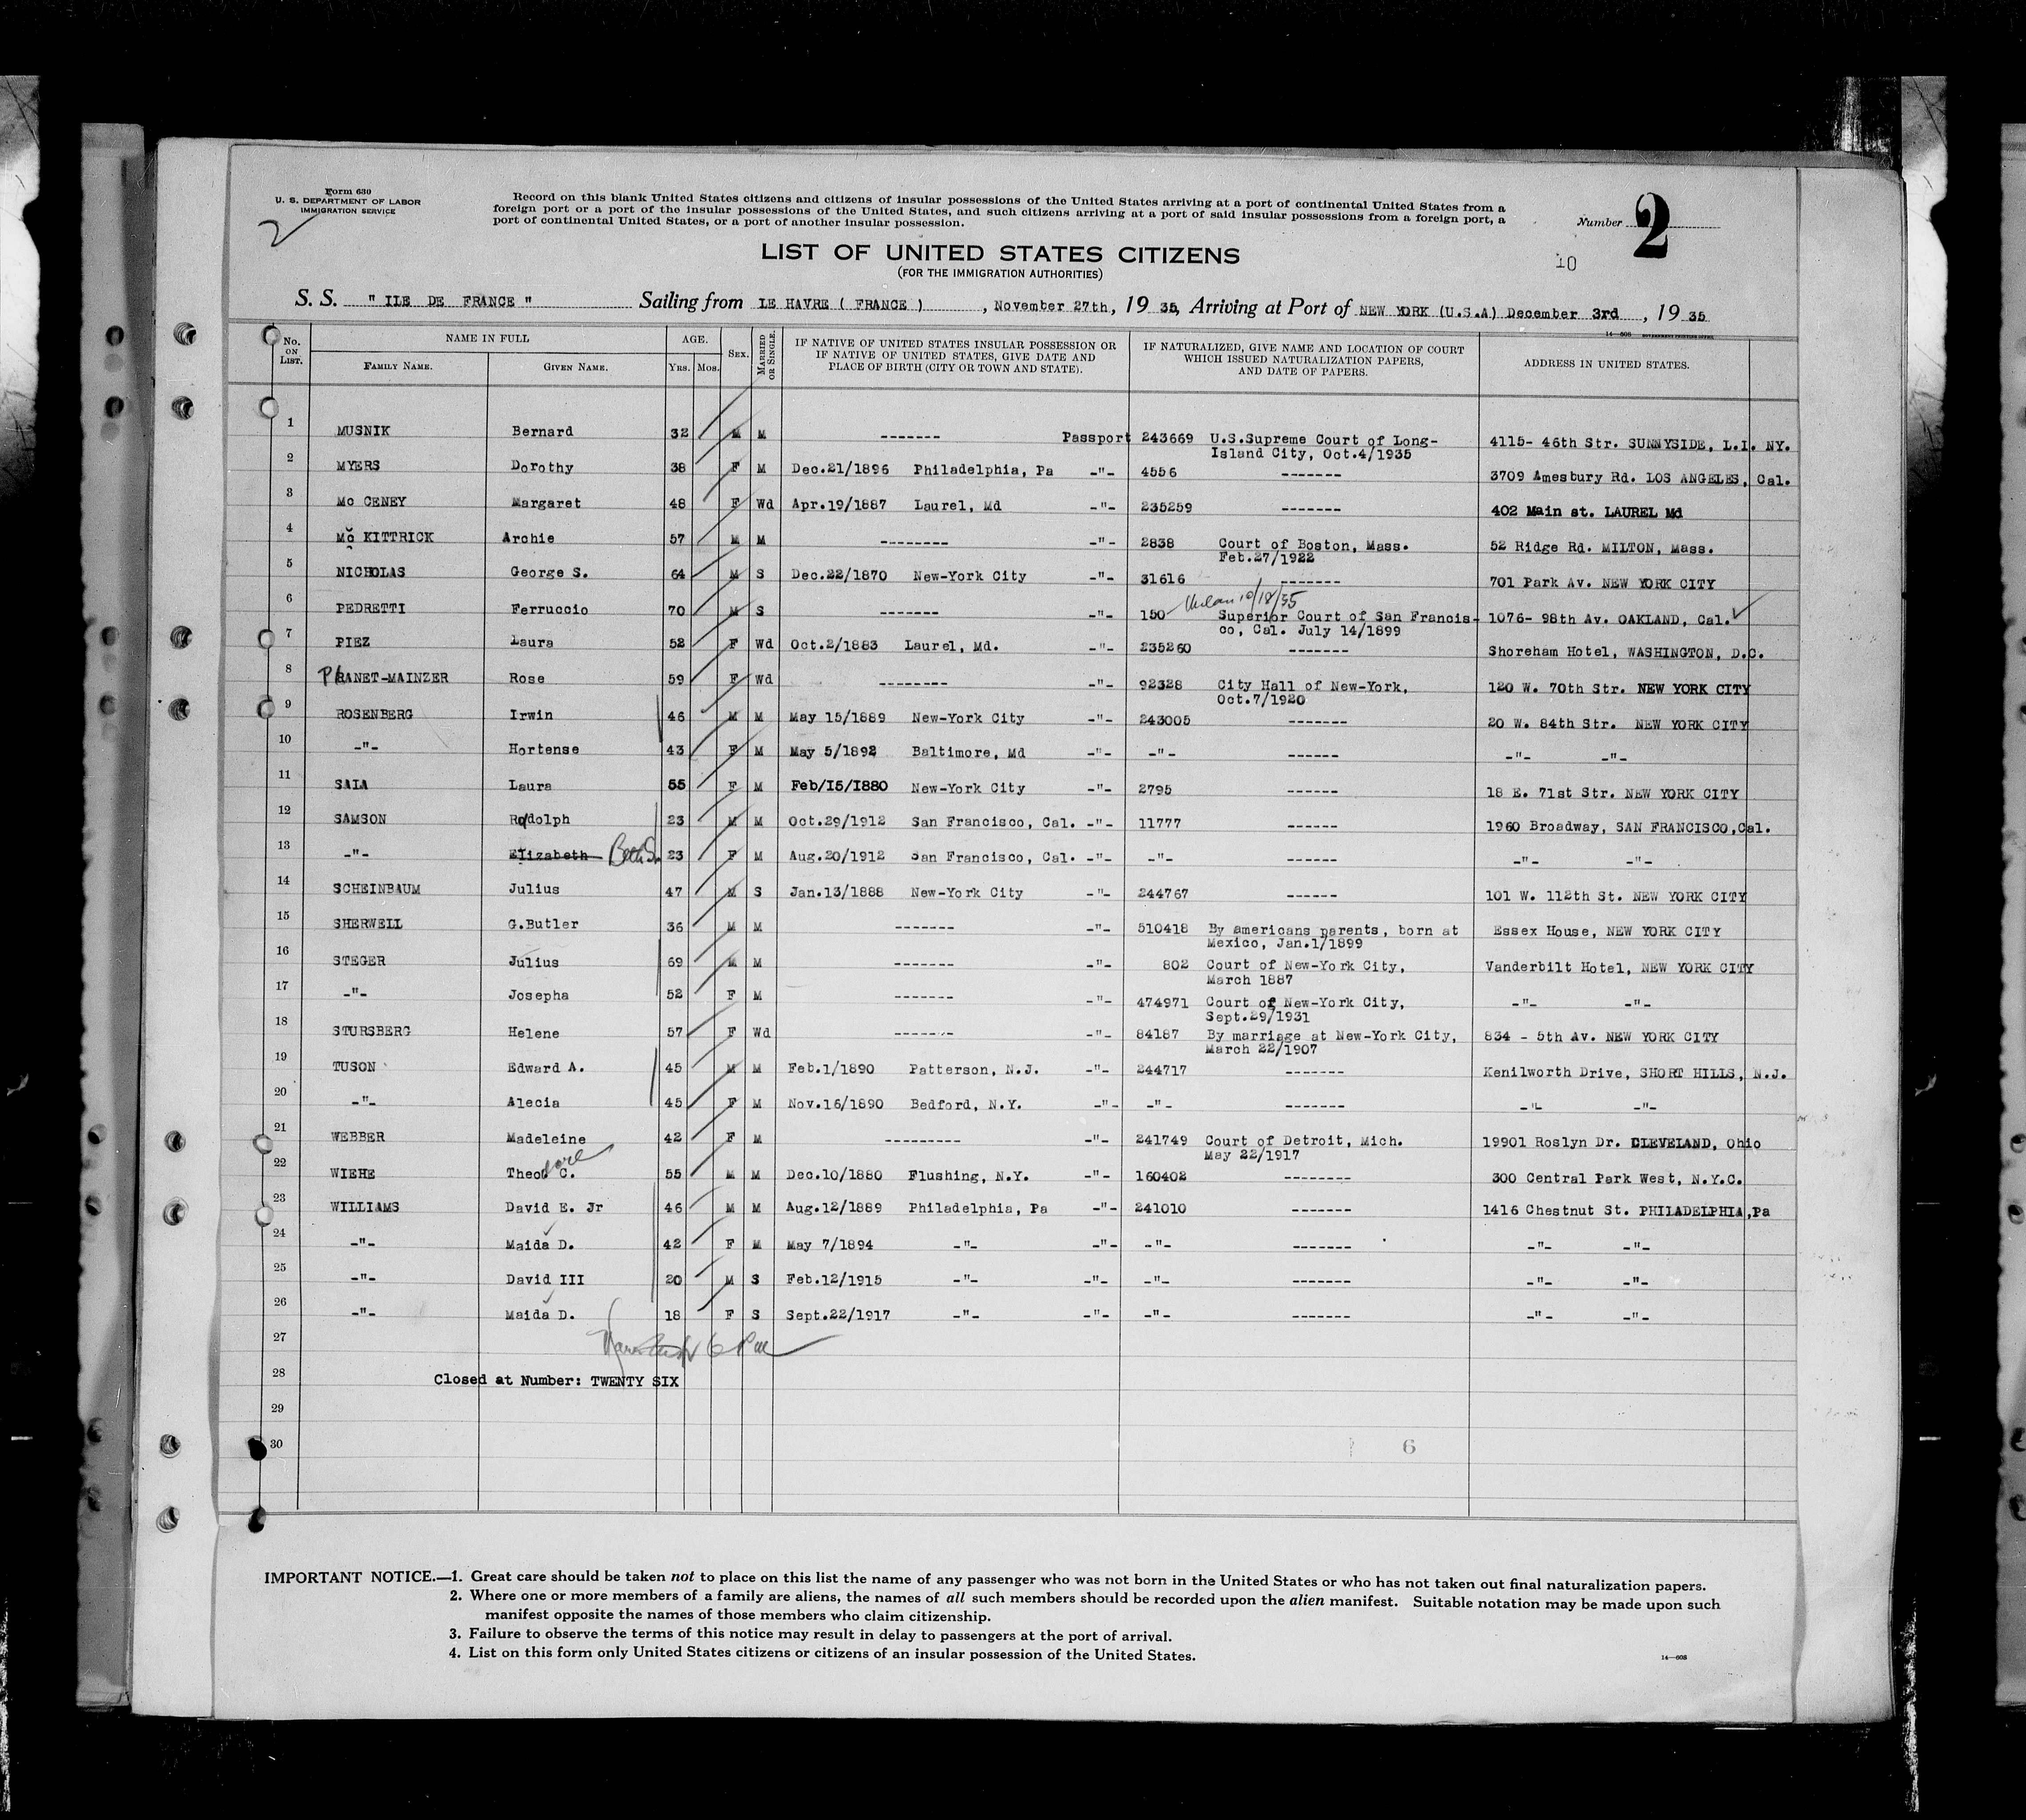 Form 630
U. S. DEPARTMENT OF LABOR
IMMIGRATION SERVICE
2
Record on this blank United States citizens and citizens of insular possessions of the United States arriving at a port of continental United States from a
foreign port or a port of the insular possessions of the United States, and such citizens arriving at a port of said insular possessions from a foreign port, a
port of continental United States, or a port of another insular possession.
Number 2
10
LIST OF UNITED STATES CITIZENS
(FOR THE IMMIGRATION AUTHORITIES)
S. S. " ILE DE FRANCE " Sailing from LE HAVRE ( FRANCE ) , November 27th, 19 35, Arriving at Port of NEW YORK (U.S.A) December 3rd , 19 35
14—608 GOVERNMENT PRINTING OFFICE
No. ON LIST. NAME IN FULL FAMILY NAME. GIVEN NAME. AGE. YRS. MOS. SEX. MARRIED OR SINGLE. IF NATIVE OF UNITED STATES INSULAR POSSESSION OR IF NATIVE OF UNITED STATES, GIVE DATE AND PLACE OF BIRTH (CITY OR TOWN AND STATE). IF NATURALIZED, GIVE NAME AND LOCATION OF COURT WHICH ISSUED NATURALIZATION PAPERS, AND DATE OF PAPERS. ADDRESS IN UNITED STATES.
1 MUSNIK Bernard 32 M M ------- Passport 243669 U.S.Supreme Court of Long- 4115- 46th Str. SUNNYSIDE, L.I. NY.
Island City, Oct.4/1935
2 MYERS Dorothy 38 F M Dec.21/1896 Philadelphia, Pa -"- 4556 ------- 3709 Amesbury Rd. LOS ANGELES, Cal.
3 Mc CENEY Margaret 48 F Wd Apr.19/1887 Laurel, Md -"- 235259 ------- 402 Main st. LAUREL Md
4 Mc KITTRICK Archie 57 M M -------- -"- 2838 Court of Boston, Mass. 52 Ridge Rd. MILTON, Mass.
Feb.27/1922
5 NICHOLAS George S. 64 M S Dec.22/1870 New-York City -"- 31616 ------- 701 Park Av. NEW YORK CITY
Milan 10/18/35
6 PEDRETTI Ferruccio 70 M S ------- -"- 150 Superior Court of San Francis- 1076- 98th Av. OAKLAND, Cal.
co, Cal. July 14/1899
7 PIEZ Laura 52 F Wd Oct.2/1883 Laurel, Md. -"- 235260 ------- Shoreham Hotel, WASHINGTON, D.C.
8 PLANET-MAINZER Rose 59 F Wd -------- -"- 92328 City Hall of New-York, 120 W. 70th Str. NEW YORK CITY
Oct.7/1920
9 ROSENBERG Irwin 46 M M May 15/1889 New-York City -"- 243005 ------- 20 W. 84th Str. NEW YORK CITY
10 -"- Hortense 43 F M May 5/1892 Baltimore, Md -"- -"- ------ -"- -"-
11 SALA Laura 55 F M Feb/15/1880 New-York City -"- 2795 ------ 18 E. 71st Str. NEW YORK CITY
12 SAMSON Rodolph 23 M M Oct.29/1912 San Francisco, Cal. -"- 11777 ------ 1960 Broadway, SAN FRANCISCO,Cal.
13 -"- Elizabeth 23 F M Aug.20/1912 San Francisco, Cal. -"- -"- ------ -"- -"-
14 SCHEINBAUM Julius 47 M S Jan.13/1888 New-York City -"- 244767 ------ 101 W. 112th St. NEW YORK CITY
15 SHERWELL G.Butler 36 M M ------- -"- 510418 By americans parents, born at Essex House, NEW YORK CITY
Mexico, Jan.1/1899
16 STEGER Julius 69 M M ------- -"- 802 Court of New-York City, Vanderbilt Hotel, NEW YORK CITY
March 1887
17 -"- Josepha 52 F M ------- -"- 474971 Court of New-York City, -"- -"-
Sept.29/1931
18 STURSBERG Helene 57 F Wd ------- -"- 84187 By marriage at New-York City, 834 - 5th Av. NEW YORK CITY
March 22/1907
19 TUSON Edward A. 45 M M Feb.1/1890 Patterson, N.J. -"- 244717 ------- Kenilworth Drive, SHORT HILLS, N.J.
20 -"- Alecia 45 F M Nov.16/1890 Bedford, N.Y. -"- -"- ------- -"- -"-
21 WEBBER Madeleine 42 F M --------- -"- 241749 Court of Detroit, Mich. 19901 Roslyn Dr. CLEVELAND, Ohio
May 22/1917
22 WIEHE Theodore C. 55 M M Dec.10/1880 Flushing, N.Y. -"- 160402 -------- 300 Central Park West, N.Y.C.
23 WILLIAMS David E. Jr 46 M M Aug.12/1889 Philadelphia, Pa -"- 241010 ------- 1416 Chestnut St. PHILADELPHIA,Pa
24 -"- Maida D. 42 F M May 7/1894 -"- -"- -"- ------- -"- -"-
25 -"- David III 20 M S Feb.12/1915 -"- -"- -"- ------- -"- -"-
26 -"- Maida D. 18 F S Sept.22/1917 -"- -"- -"- ------- -"- -"-
27
28 Closed at Number: TWENTY SIX
29
30
6
IMPORTANT NOTICE.—1. Great care should be taken not to place on this list the name of any passenger who was not born in the United States or who has not taken out final naturalization papers.
2. Where one or more members of a family are aliens, the names of all such members should be recorded upon the alien manifest. Suitable notation may be made upon such
manifest opposite the names of those members who claim citizenship.
3. Failure to observe the terms of this notice may result in delay to passengers at the port of arrival.
4. List on this form only United States citizens or citizens of an insular possession of the United States.
14—608